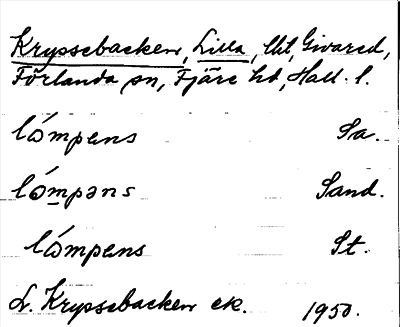 Kryssebacken, Lilla, lht, Givared,
Förlanda sn, Fjäre hd, Hall. l.
lómpens Sa.
lómpəns Sand.
lómpens St.
L. Kryssebacken ek. 1950.